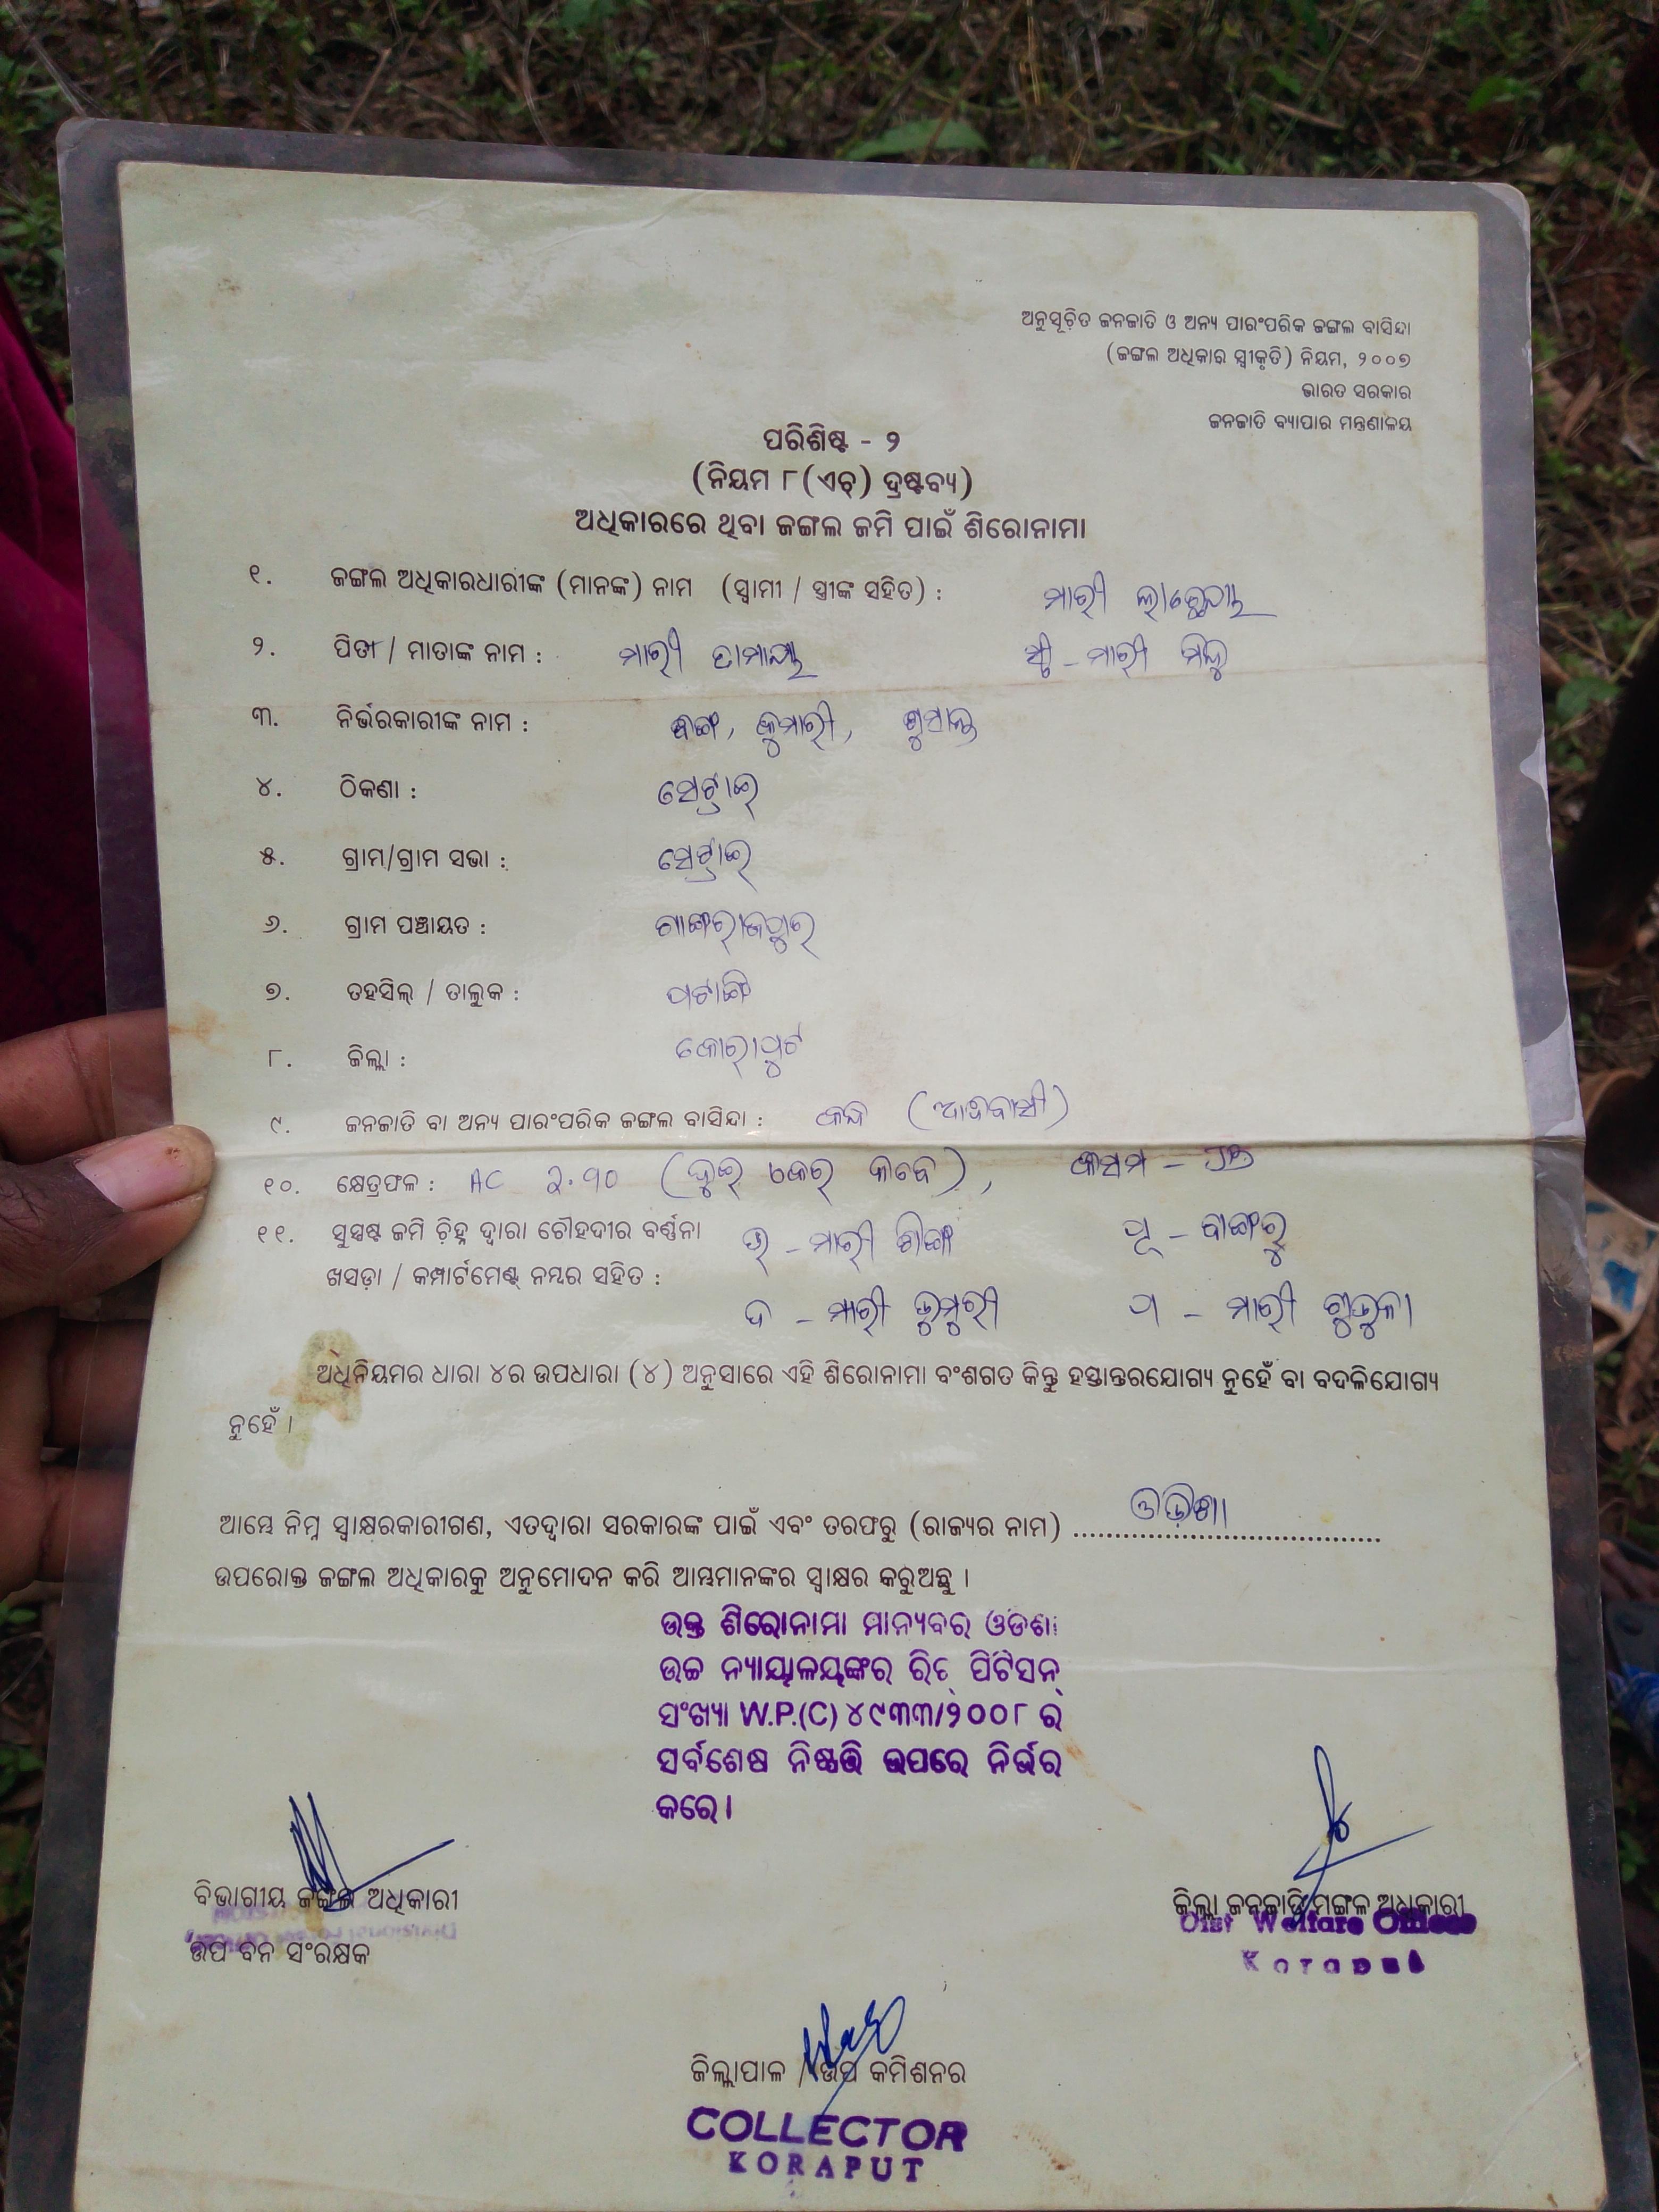 ଅନୁସୂଚିତ ଜନଜାତି ଓ ଅନ୍ୟ ପାରଂପରିକ ଜଙ୍ଗଲ ବାସିନ୍ଦା
(ଜଙ୍ଗଲ ଅଧିକାର ସ୍ୱୀକୃତି) ନିୟମ, ୨୦୦୭
ଭାରତ ସରକାର
ଜନଜାତି ବ୍ୟାପାର ମନ୍ତ୍ରଣାଳୟ
ପରିଶିଷ୍ଟ - ୨
(ନିୟମ ୮(ଏଚ୍) ଦ୍ରଷ୍ଟବ୍ୟ)
ଅଧିକାରରେ ଥିବା ଜଙ୍ଗଲ ଜମି ପାଇଁ ଶିରୋନାମା
୧. ଜଙ୍ଗଲ ଅଧିକାରଧାରୀଙ୍କ (ମାନଙ୍କ) ନାମ (ସ୍ୱାମୀ / ସ୍ତ୍ରୀଙ୍କ ସହିତ) : ମାରୀ
୨. ପିତା / ମାତାଙ୍କ ନାମ : ମାରୀ ସ୍ତ୍ରୀ - ମାରୀ
୩. ନିର୍ଭରକାରୀଙ୍କ ନାମ : କୁମାରୀ,
୪. ଠିକଣା :
୫. ଗ୍ରାମ/ଗ୍ରାମ ସଭା :
୬. ଗ୍ରାମ ପଞ୍ଚାୟତ :
୭. ତହସିଲ୍ / ତାଲୁକ : ପଟାଙ୍ଗି
୮. ଜିଲ୍ଲା : କୋରାପୁଟ
୯. ଜନଜାତି ବା ଅନ୍ୟ ପାରଂପରିକ ଜଙ୍ଗଲ ବାସିନ୍ଦା : କନ୍ଧ (ଆଦିବାସୀ)
୧୦. କ୍ଷେତ୍ରଫଳ : AC ୨.୧୦
୧୧. ସୁସ୍ପଷ୍ଟ ଜମି ଚିହ୍ନ ଦ୍ୱାରା ଚୌହଦୀର ବର୍ଣ୍ଣନା ଉ - ମାରୀ ପୂ -
ଖସଡ଼ା / କମ୍ପାର୍ଟମେଣ୍ଟ୍ ନମ୍ବର ସହିତ :
ଦ - ମାରୀ ଡୁମୁରୀ ପ - ମାରୀ
ଅଧିନିୟମର ଧାରା ୪ର ଉପଧାରା (୪) ଅନୁସାରେ ଏହି ଶିରୋନାମା ବଂଶଗତ କିନ୍ତୁ ହସ୍ତାନ୍ତରଯୋଗ୍ୟ ନୁହେଁ ବା ବଦଳିଯୋଗ୍ୟ
ନୁହେଁ ।
ଆମ୍ଭେ ନିମ୍ନ ସ୍ୱାକ୍ଷରକାରୀଗଣ, ଏତଦ୍ୱାରା ସରକାରଙ୍କ ପାଇଁ ଏବଂ ତରଫରୁ (ରାଜ୍ୟର ନାମ) ଓଡ଼ିଶା
ଉପରୋକ୍ତ ଜଙ୍ଗଲ ଅଧିକାରକୁ ଅନୁମୋଦନ କରି ଆମ୍ଭମାନଙ୍କର ସ୍ୱାକ୍ଷର କରୁଅଛୁ ।
ଉକ୍ତ ଶିରୋନାମା ମାନ୍ୟବର ଓଡିଶା
ଉଚ୍ଚ ନ୍ୟାୟାଳୟଙ୍କର ରିଟ୍ ପିଟିସନ୍
ସଂଖ୍ୟା W.P.(C) ୪୯୩୩/୨୦୦୮ ର
ସର୍ବଶେଷ ନିଷ୍ପତ୍ତି ଉପରେ ନିର୍ଭର
କରେ।
ବିଭାଗୀୟ ଜଙ୍ଗଲ ଅଧିକାରୀ
ଉପ ବନ ସଂରକ୍ଷକ
ଜିଲ୍ଲା ଜନଜାତି ମଙ୍ଗଳ ଅଧିକାରୀ
Dist Welfare Officer
Koraput
ଜିଲ୍ଲାପାଳ / ଉପ କମିଶନର
COLLECTOR
KORAPUT